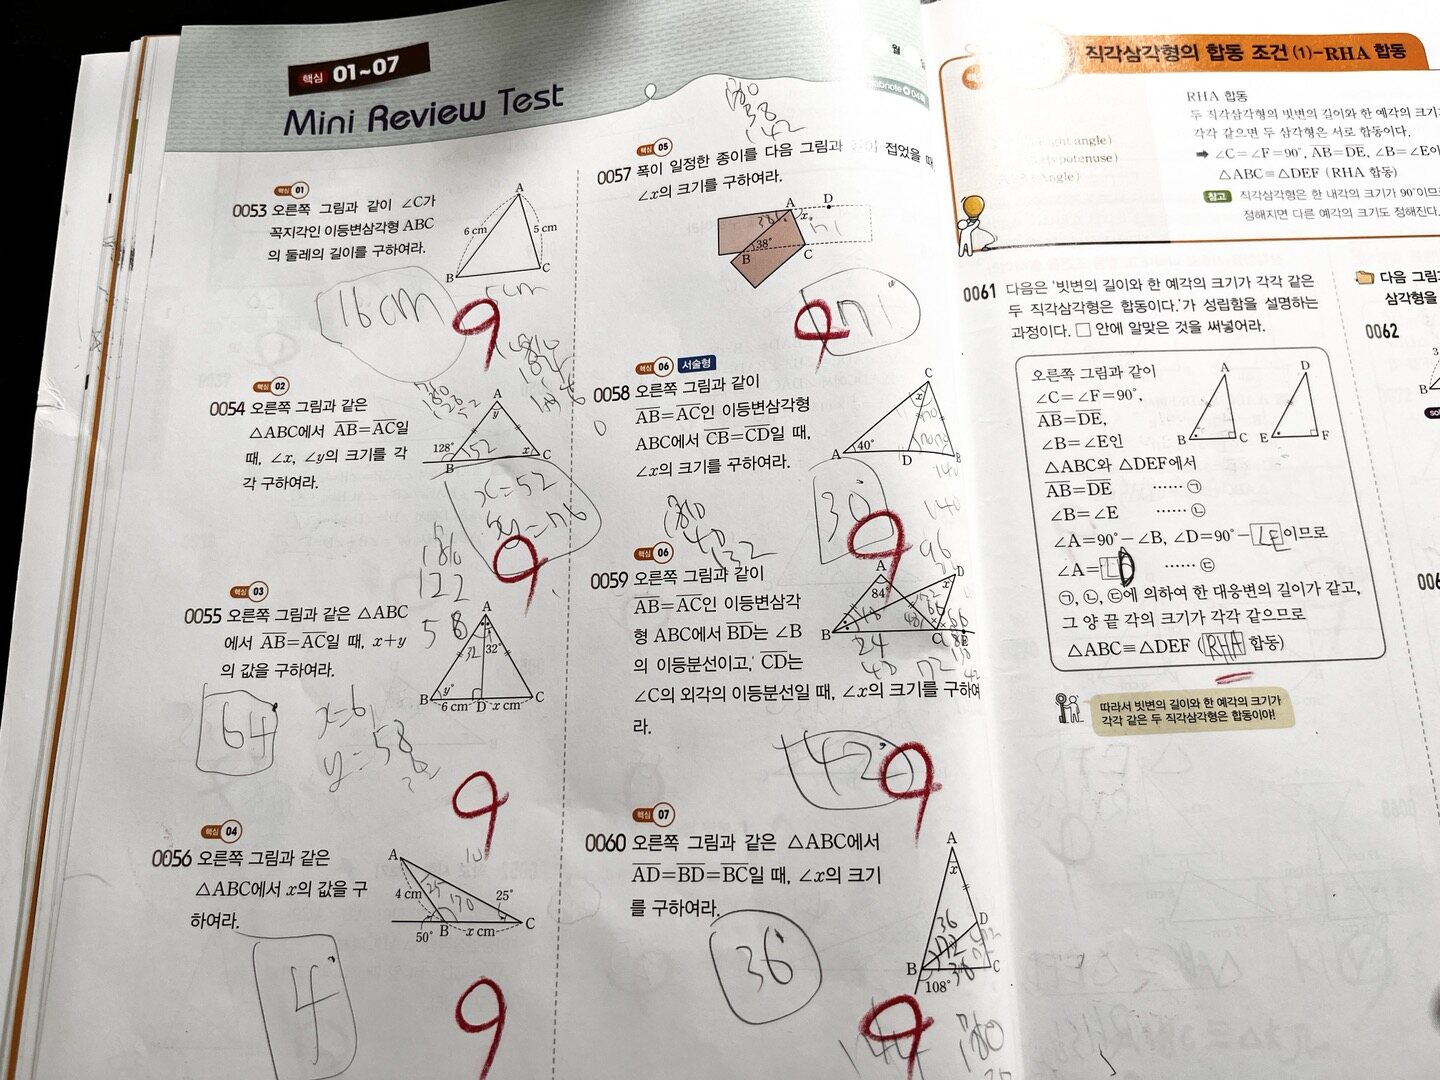 핵심 01~07
Mini Review Test
월
핵심 01
0053 오른쪽 그림과 같이 ∠C가
꼭지각인 이등변삼각형 ABC
의 둘레의 길이를 구하여라.
A
6 cm
5 cm
B
C
16cm
핵심 02
0054 오른쪽 그림과 같은
△ABC에서 AB=AC일
때, ∠x, ∠y의 크기를 각
각 구하여라.
A
y
128°
52
x
B
C
x=52
y=76
핵심 03
0055 오른쪽 그림과 같은 △ABC
에서 AB=AC일 때, x+y
의 값을 구하여라.
180
122
58
A
32
32°
B
y°
6 cm D x cm
C
64
x=6
y=58
핵심 04
0056 오른쪽 그림과 같은
△ABC에서 x의 값을 구
하여라.
A
4 cm
25
25°
50°
B
x cm
C
4
핵심 05
0057 폭이 일정한 종이를 다음 그림과 접었을 때
∠x의 크기를 구하여라.
38
142
A
D
x
38°
B
C
71°
핵심 06 서술형
0058 오른쪽 그림과 같이
AB=AC인 이등변삼각형
ABC에서 CB=CD일 때,
∠x의 크기를 구하여라.
C
x
40°
A
D
B
30°
핵심 06
0059 오른쪽 그림과 같이
AB=AC인 이등변삼각
형 ABC에서 BD는 ∠B
의 이등분선이고, CD는
∠C의 외각의 이등분선일 때, ∠x의 크기를 구하여
라.
140
96
A
D
84°
x
B
C
24
42°
핵심 07
0060 오른쪽 그림과 같은 △ABC에서
AD=BD=BC일 때, ∠x의 크기
를 구하여라.
A
x
36
D
72
B
C
108°
36°
직각삼각형의 합동 조건 (1)-RHA 합동
RHA 합동
두 직각삼각형의 빗변의 길이와 한 예각의 크기가
각각 같으면 두 삼각형은 서로 합동이다.
➡ ∠C=∠F=90°, AB=DE, ∠B=∠E이
△ABC≡△DEF (RHA 합동)
참고 직각삼각형은 한 내각의 크기가 90°이므
정해지면 다른 예각의 크기도 정해진다.
0061 다음은 '빗변의 길이와 한 예각의 크기가 각각 같은
두 직각삼각형은 합동이다.'가 성립함을 설명하는
과정이다. □ 안에 알맞은 것을 써넣어라.
오른쪽 그림과 같이
∠C=∠F=90°,
AB=DE,
∠B=∠E인
△ABC와 △DEF에서
A
D
B
C
E
F
AB=DE ······ ㉠
∠B=∠E ······ ㉡
∠A=90°-∠B, ∠D=90°-∠E이므로
∠A=∠D ······ ㉢
㉠, ㉡, ㉢에 의하여 한 대응변의 길이가 같고,
그 양 끝 각의 크기가 각각 같으므로
△ABC≡△DEF (RHA 합동)
따라서 빗변의 길이와 한 예각의 크기가
각각 같은 두 직각삼각형은 합동이야!
다음 그림
삼각형을
0062